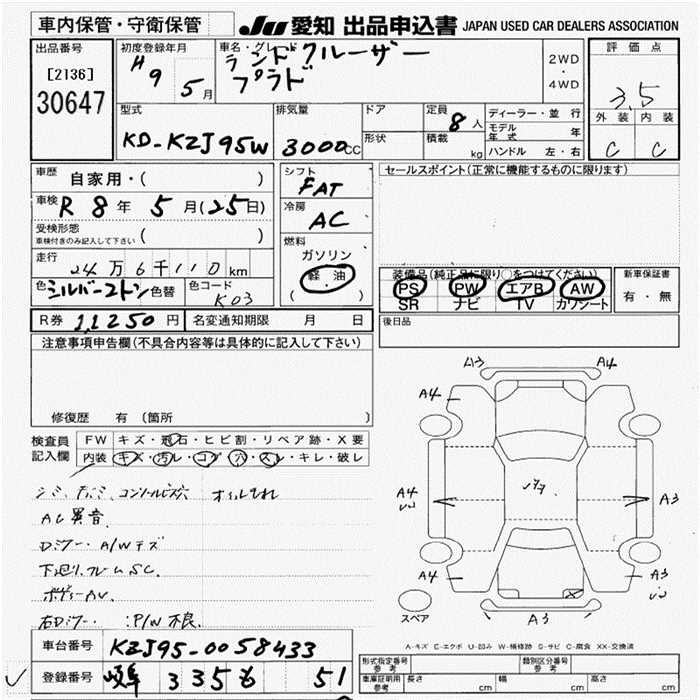 車内保管・守衛保管
JU 愛知 出品申込書 JAPAN USED CAR DEALERS ASSOCIATION
出品番号
[2136]
30647
初度登録年月
H9 5月
車名・グレード
ランドクルーザー
プラド
2WD
・
4WD
評価点
3.5
外装 内装
C C
型式
KD-KZJ95W
排気量
3000cc
ドア
形状
定員 8人
積載 kg
ディーラー・並行
モデル年式 年
ハンドル 左・右
車歴 自家用・( )
車検 R8年5月(25日)
受検形態
車検付きのみ記入して下さい ( )
走行 24万6千110km
色 シルバー2トン 色替
色コード K03
シフト
FAT
冷房
AC
燃料
ガソリン
軽油
( )
セールスポイント(正常に機能するものに限ります)
装備品(純正品に限り○をつけてください)
PS PW エアB AW
SR ナビ TV カワシート
新車保証書
有・無
R券 11,250円 名変通知期限 月 日
後日品
注意事項申告欄(不具合内容等は具体的に記入して下さい)
修復歴 有 (箇所
検査員記入欄
FW キズ・飛石・ヒビ割・リペア跡・X要
内装 キズ・汚レ・コゲ・穴・スレ・キレ・破レ
オイルもれ
AC異音
Dミラー A/Wキズ
下廻り、フレームSC
右Dミラー :P/W不良
A3 A4
A4
A4
A3
A4
A3
A3
スペア
A-キズ E-エクボ U-凹み W-補修跡 S-サビ C-腐食 XX-交換済
車台番号 KZJ95-0058433
登録番号 岐阜 335 も 51
形式指定番号 参考
類別区分番号 参考
車庫証明用 参考 長さ cm 幅 cm 高さ cm